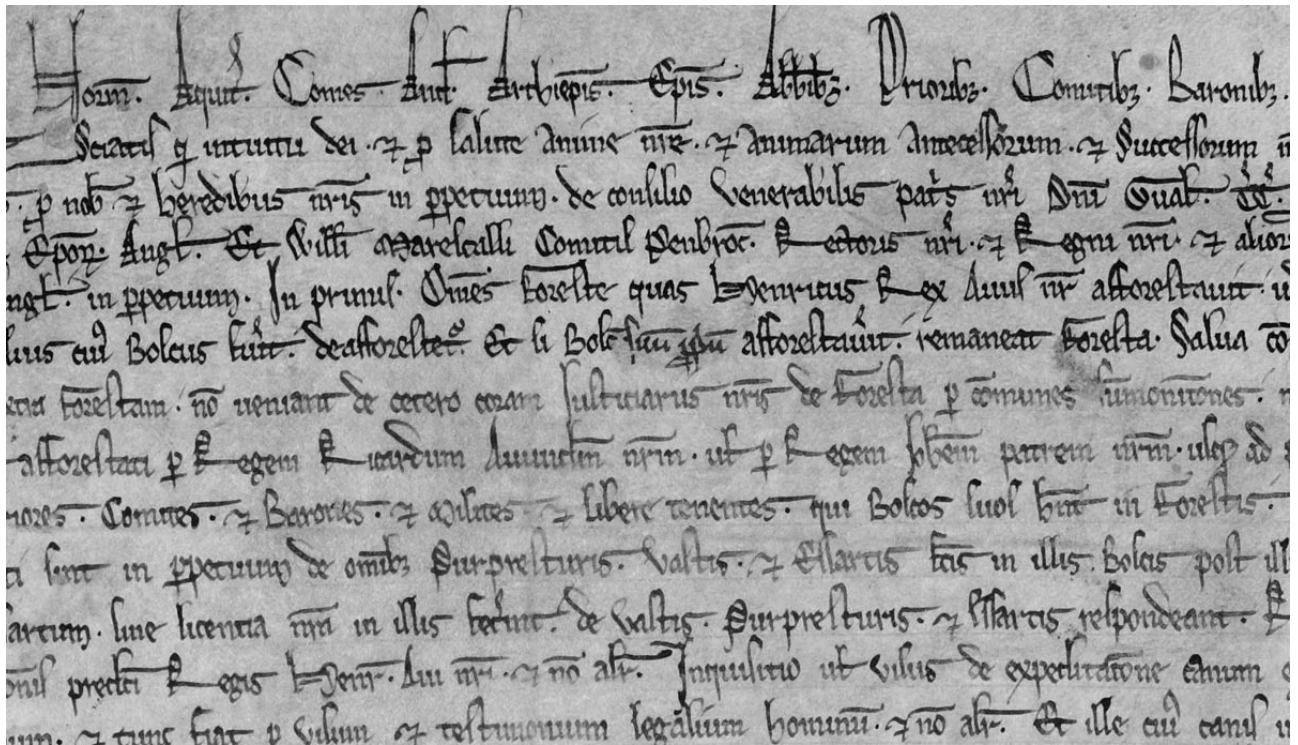 Norm̄. Aquit̄. Comes. And̄. Archiep̄is. Ep̄is. Abb̄ibꝫ. Prioribꝫ. Comitibꝫ. Baronibꝫ.
Sciatis qͥ intuitu dei ⁊ ꝓ salute anime nr̄e ⁊ animarum antecessorum ⁊ Successorum
ꝓ nob̄ ⁊ heredibus nr̄is in ꝑpetuum. de consilio venerabilis pat̾s nr̄i Dn̄i Gual̄. T̄t̾.
Ep̄oꝝ. Angl̄. Et Will̄i Marescalli Comitis Penbroc̄. Rectoris nr̄i ⁊ Regni nr̄i ⁊ alioꝝ
Angl̄. in ꝑpetuum. In primis. Om̄es foreste quas Henricus Rex Auus nr̄ afforestauit.
cui᾽ Boscus fu̾it. deafforestet᷑. Et si Bosc̄ suū ꝓpͥū afforestau̾it. remaneat foresta. Salua
forestam. nō ueniant de cetero coram Justiciariis nr̄is de foresta ꝑ cōmunes sūmonitiones.
afforestati ꝑ Regem Ricardum Auunclm̄ nr̄m. ul̄ ꝑ Regem Joh̄em patrem nr̄m. usqꝫ ad
Comites. ⁊ Barones. ⁊ Milites ⁊ libere tenentes. qui Boscos suos hn̄t in forestis.
sint in ꝑpetuum de om̄ibꝫ Purpresturis. Vastis. ⁊ Essartis fc̄is in illis Boscis post
sine licentia nr̄a in illis fec̾int. de Vastis. Purpresturis. ⁊ Essartis respondeant.
predc̄i Regis Henr̄. Aui nr̄i. ⁊ nō al̄r. Inquisitio ul̄ visus de expeditatōne canum
⁊ tunc fiat ꝑ visum ⁊ testimonium legalium hominū. ⁊ nō al̄r. Et ille cui᾽ canis